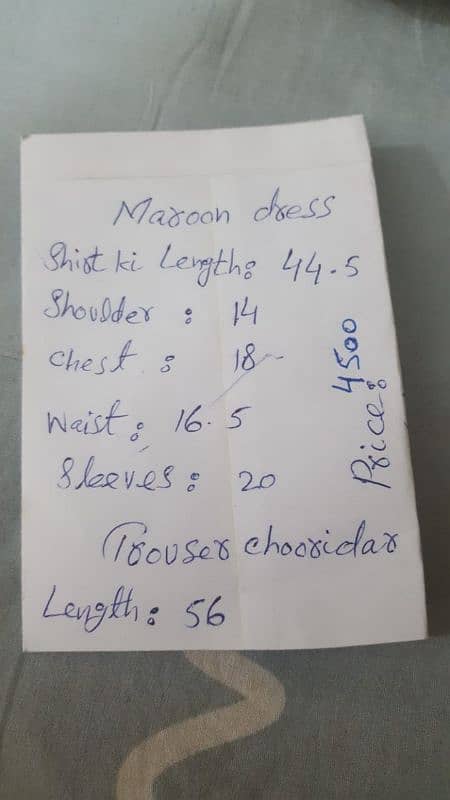 Maroon dress
Shirt ki Length: 44.5
Shoulder : 14
Chest : 18
Waist : 16.5
Sleeves : 20
Trouser chooridar
Length : 56
Price : 4500